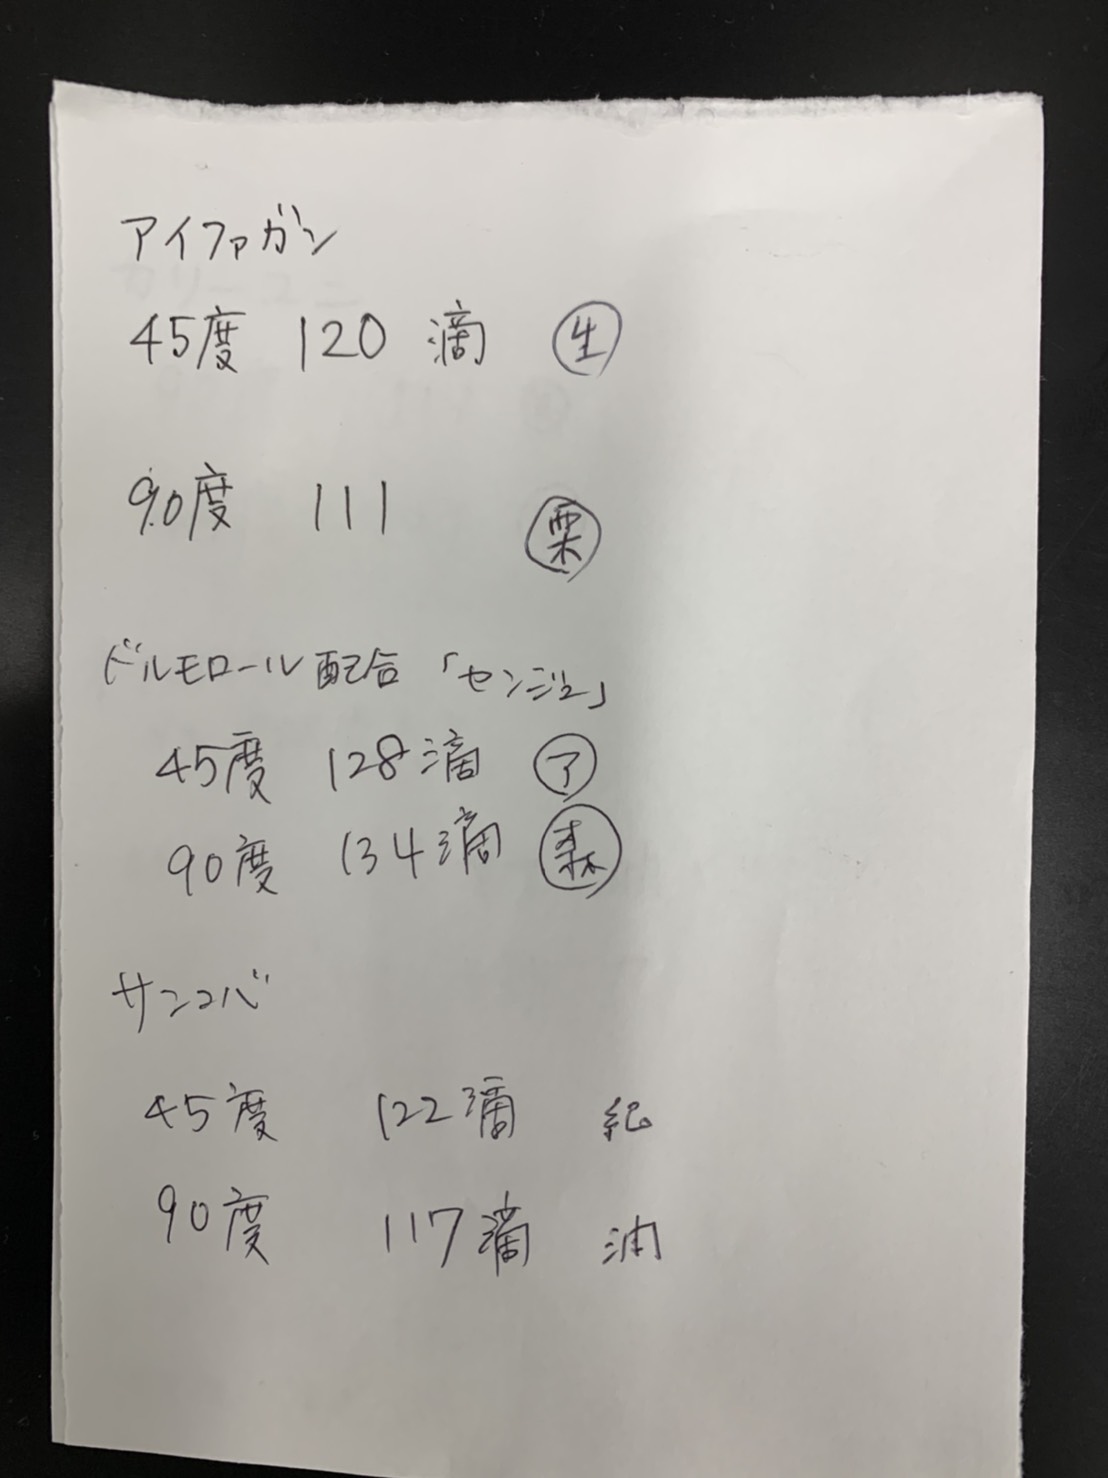 アイファガン
45度 120 滴 生
90度 111 栗
ドルモロール配合「センジュ」
45度 128滴 ア
90度 134滴 森
サンコバ
45度 122滴 紀
90度 117滴 油